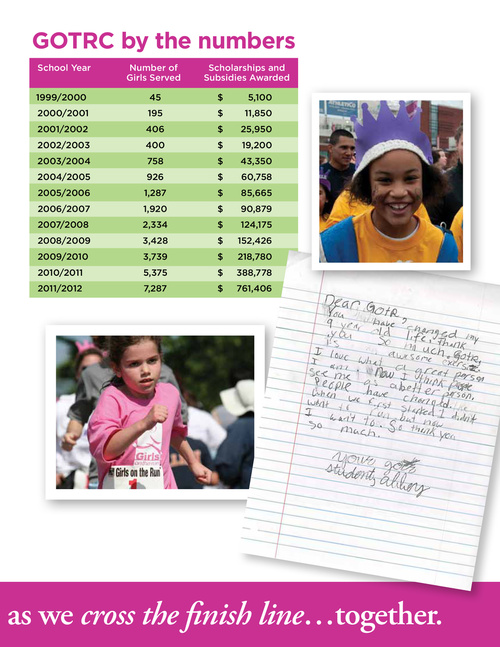 GOTRC by the numbers
School Year Number of Girls Served Scholarships and Subsidies Awarded
1999/2000 45 $ 5,100
2000/2001 195 $ 11,850
2001/2002 406 $ 25,950
2002/2003 400 $ 19,200
2003/2004 758 $ 43,350
2004/2005 926 $ 60,758
2005/2006 1,287 $ 85,665
2006/2007 1,920 $ 90,879
2007/2008 2,334 $ 124,175
2008/2009 3,428 $ 152,426
2009/2010 3,739 $ 218,780
2010/2011 5,375 $ 388,778
2011/2012 7,287 $ 761,406
Dear GOTR,
You have changed my
9 year old life, thank
you so much, GOTR,
it's awesome
I love what a great person
I am! Now I think
see me as a better person,
People have changed
when we first started I didn't
want to but now
I want to. So thank you
so much.
your
student,
Girls
Girls on the Run
1
as we cross the finish line…together.